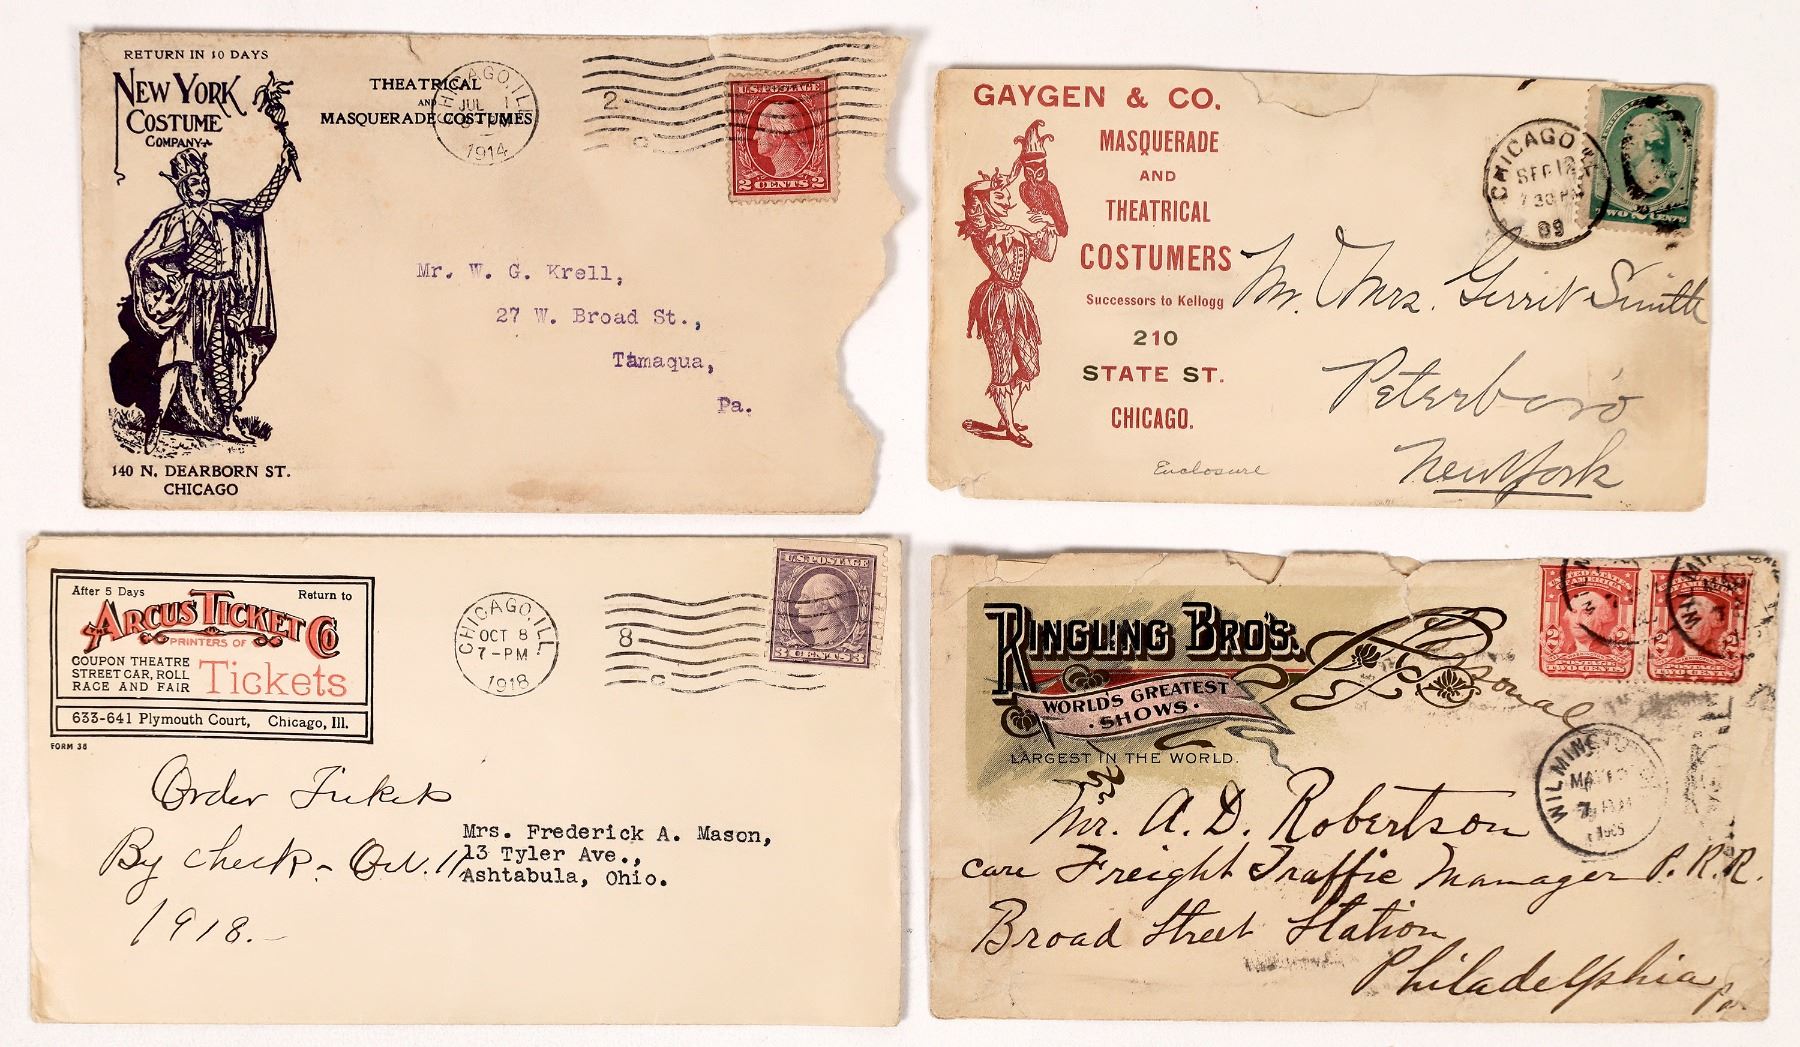 RETURN IN 10 DAYS
NEW YORK
COSTUME
COMPANY
THEATRICAL
AND
MASQUERADE COSTUMES
CHICAGO, ILL
JUL 1
1914
2
U.S. POSTAGE
2 CENTS 2
Mr. W. G. Krell,
27 W. Broad St.,
Tamaqua,
Pa.
140 N. DEARBORN ST.
CHICAGO
GAYGEN & CO.
MASQUERADE
AND
THEATRICAL
COSTUMERS
Successors to Kellogg
210
STATE ST.
CHICAGO.
CHICAGO
SEP 12
7 30 PM
89
TWO 2 CENTS
Mr. & Mrs. Gerrit Smith
Peterboro
New York
Enclosure
After 5 Days Return to
THE ARCUS TICKET CO
PRINTERS OF
COUPON THEATRE
STREET CAR, ROLL
RACE AND FAIR
Tickets
633-641 Plymouth Court, Chicago, Ill.
FORM 36
CHICAGO, ILL.
OCT 8
7-PM
1918
8
U.S. POSTAGE
3 CENTS 3
Order Tickets
By check - Oct. 11
1918.-
Mrs. Frederick A. Mason,
13 Tyler Ave.,
Ashtabula, Ohio.
RINGLING BRO'S.
WORLD'S GREATEST
SHOWS
LARGEST IN THE WORLD.
Personal
UNITED STATES
OF AMERICA
2 2
POSTAGE
TWO CENTS
2 2
POSTAGE
TWO CENTS
WILMINGTON
MAY
1905
Mr. A. D. Robertson
care Freight Traffic Manager P. R. R.
Broad Street Station
Philadelphia
Pa.